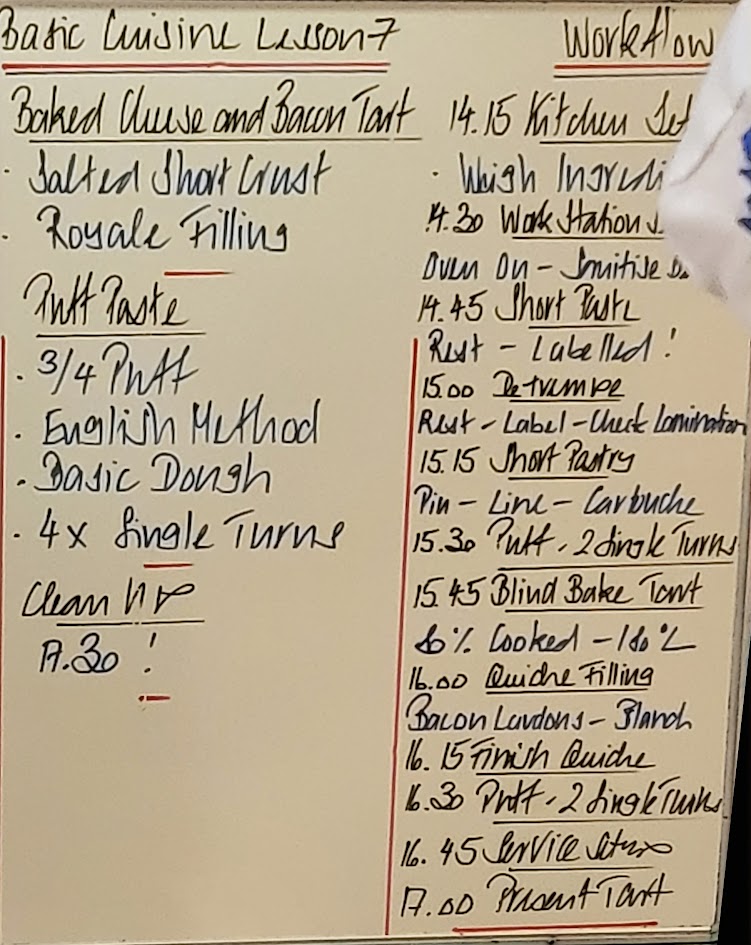 Basic Cuisine Lesson 7
Baked Cheese and Bacon Tart
· Salted Short Crust
· Royale Filling
Puff Paste
· 3/4 Puff
· English Method
· Basic Dough
· 4x Single Turns
Clean Up
17.30 !
Workflow
14.15 Kitchen Set
· Weigh Ingredi
14.30 Work Station S
Oven On - Sanitise B
14.45 Short Paste
Rest - Labelled !
15.00 Detrempe
Rest - Label - Check Lamination
15.15 Short Pastry
Pin - Line - Cartouche
15.30 Puff - 2 Single Turns
15.45 Blind Bake Tart
80% Cooked - 180°C
16.00 Quiche Filling
Bacon Lardons - Blanch
16.15 Finish Quiche
16.30 Puff - 2 Single Turns
16.45 Service Setup
17.00 Present Tart